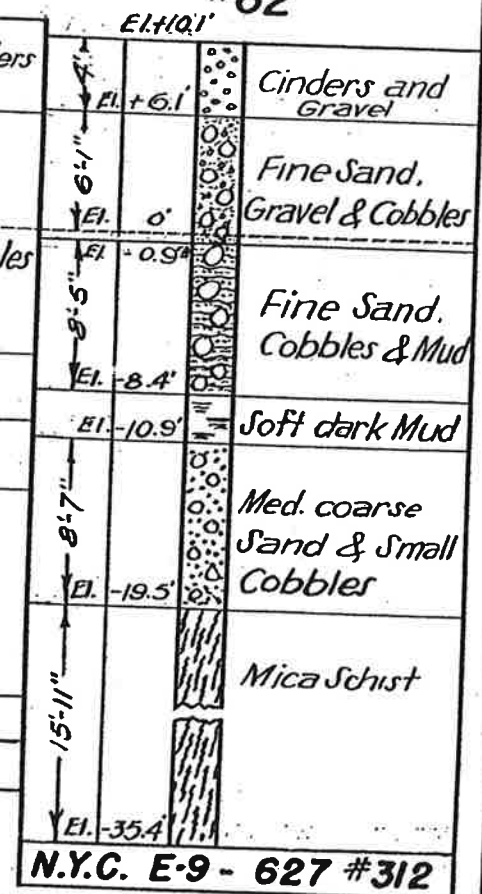 62
El.+10.1'
ers
4'
El. +6.1'
Cinders and
Gravel
6'-1"
Fine Sand.
Gravel & Cobbles
El. 0'
les
El. -0.9'
8'-5"
Fine Sand.
Cobbles & Mud
El. -8.4'
El. -10.9'
Soft dark Mud
8'-7"
Med. coarse
Sand & Small
Cobbles
El. -19.5'
15'-11"
Mica Schist
El. -35.4'
N.Y.C. E-9 - 627 #312